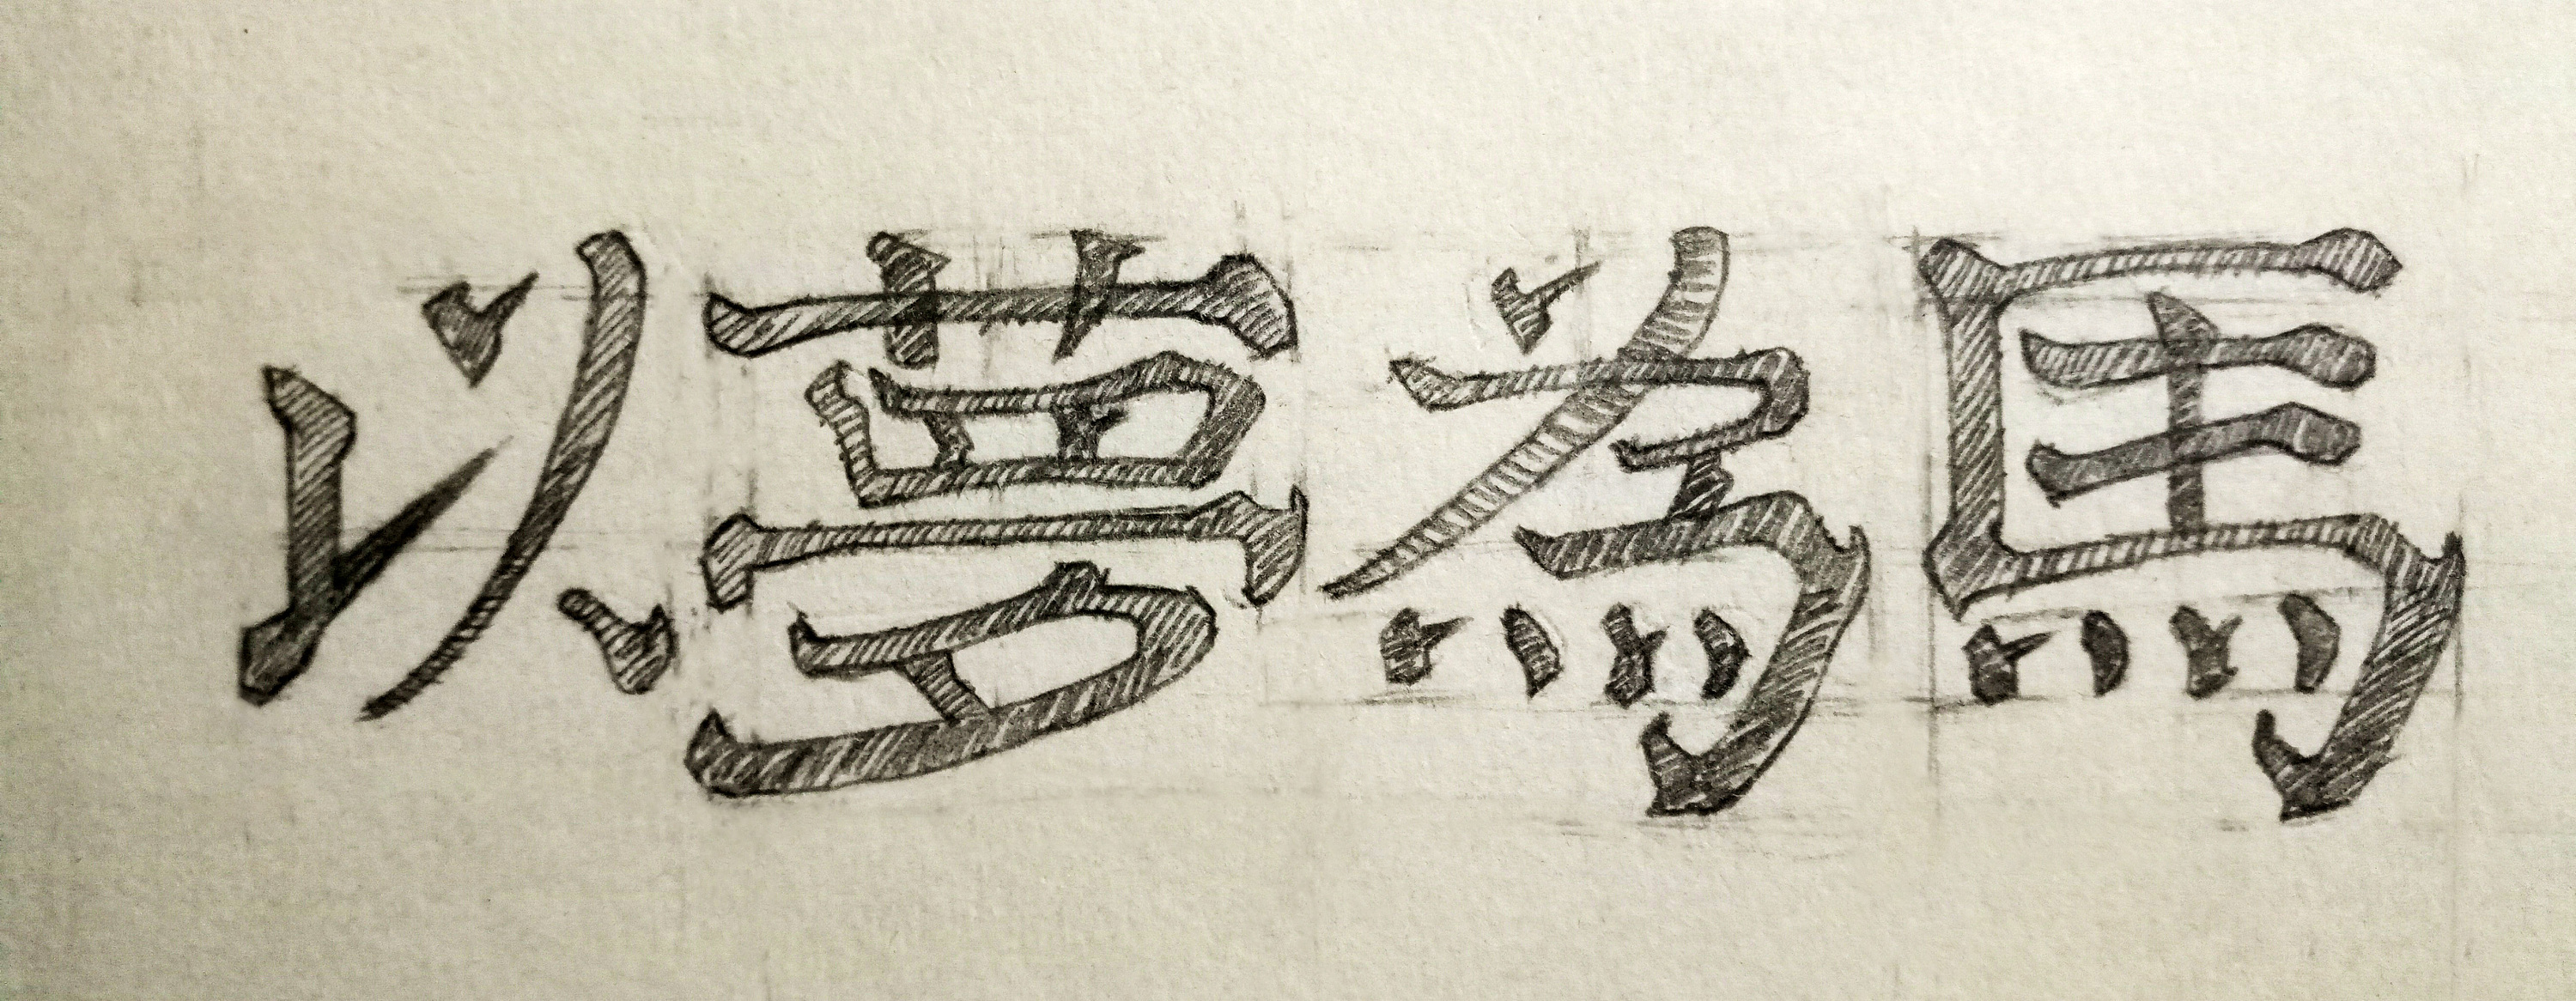 以夢為馬